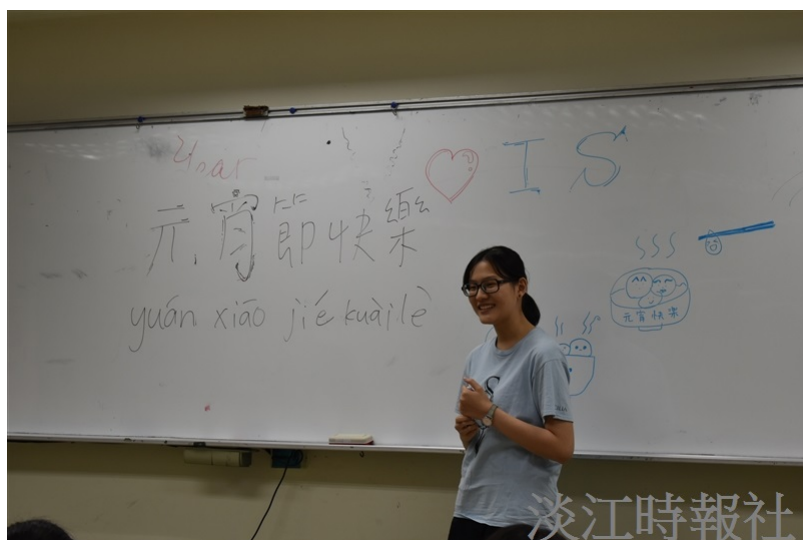 IS
元宵節快樂
yuán xiāo jié kuài lè
元宵快樂
淡江時報社